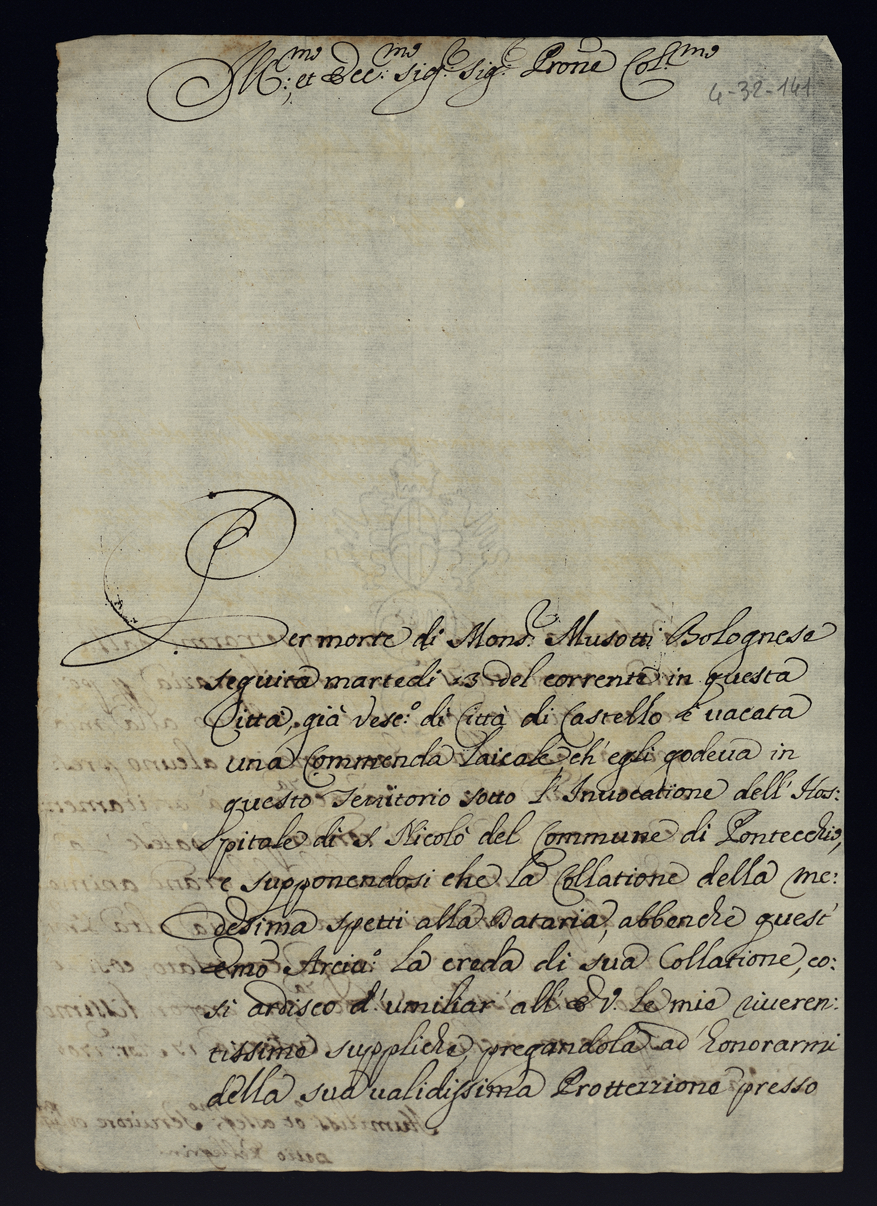 Ill:mo et Ecc:mo Sig:r Sig:r Prone Col:mo
4-32-141
Per morte di Mons:r Musotti Bolognese
seguita martedi 23 del corrente in questa
Città, già Vesc:o di Città di Castello è vacata
una Commenda laicale ch'egli godeva in
questo Territorio sotto l'Invocatione dell'Hos:
pitale di S. Nicolò del Commune di Pontecchio,
e supponendosi che la Collatione della me:
desima spetti alla Dataria, abbenche quest'
emo Arciu:o la creda di sua Collatione, co:
si ardisco d'umiliar' all'E V. le mie riveren:
tissime suppliche, pregandola ad honorarmi
della sua validissima Prottezzione presso